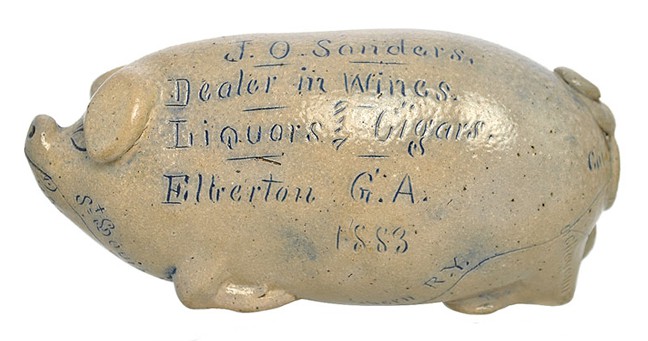 J. O. Sanders.
Dealer in Wines.
Liquors & Cigars.
Elberton G.A.
1883
St
R.Y.